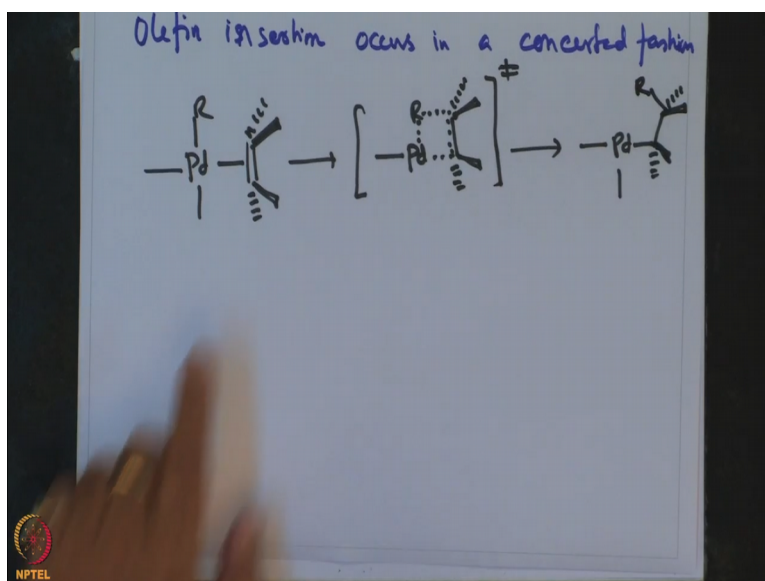 Olefin insertion occurs in a concerted fashion
R
R
R
‡
Pd
Pd
Pd
NPTEL